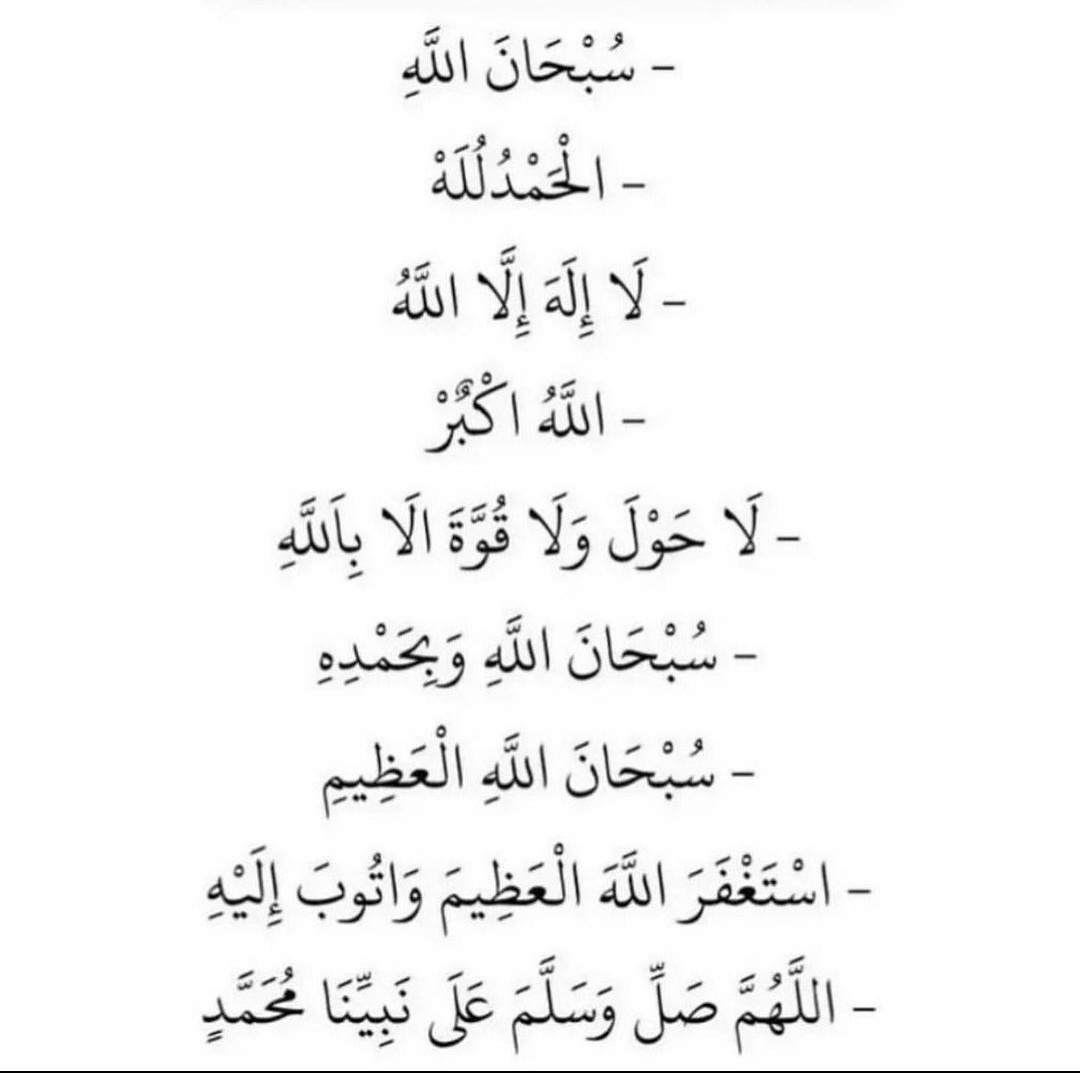 - سُبْحَانَ اللَّهِ
- الْحَمْدُلُلَهْ
- لَا إِلَهَ إِلَّا اللَّهُ
- اللَّهُ اكْبٌرْ
- لَا حَوْلَ وَلَا قُوَّةَ الَا بِاَللَّهِ
- سُبْحَانَ اللَّهِ وَبِحَمْدِهِ
- سُبْحَانَ اللَّهِ الْعَظِيمِ
- اسْتَغْفَرَ اللَّهَ الْعَظِيمَ وَاتُوبَ إِلَيْهِ
- اللَّهُمَّ صَلِّ وَسَلَّمَ عَلَى نَبِيِّنَا مُحَمَّدٍ